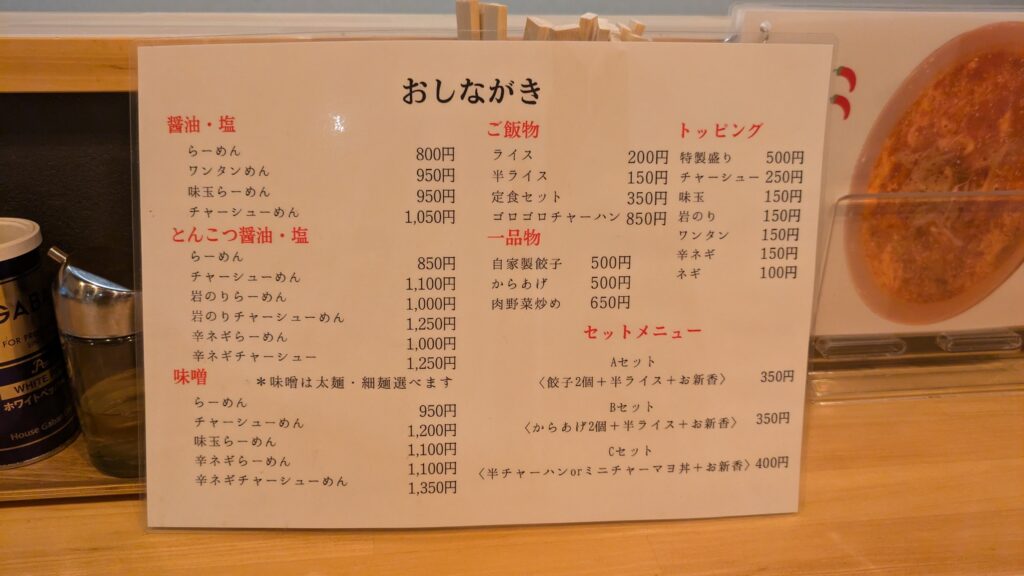 おしながき
醤油・塩
らーめん 800円
ワンタンめん 950円
味玉らーめん 950円
チャーシューめん 1,050円
とんこつ醤油・塩
らーめん 850円
チャーシューめん 1,100円
岩のりらーめん 1,000円
岩のりチャーシューめん 1,250円
辛ネギらーめん 1,000円
辛ネギチャーシュー 1,250円
味噌 *味噌は太麺・細麺選べます
らーめん 950円
チャーシューめん 1,200円
味玉らーめん 1,100円
辛ネギらーめん 1,100円
辛ネギチャーシューめん 1,350円
ご飯物
ライス 200円
半ライス 150円
定食セット 350円
ゴロゴロチャーハン 850円
一品物
自家製餃子 500円
からあげ 500円
肉野菜炒め 650円
トッピング
特製盛り 500円
チャーシュー 250円
味玉 150円
岩のり 150円
ワンタン 150円
辛ネギ 150円
ネギ 100円
セットメニュー
Aセット
〈餃子2個+半ライス+お新香〉 350円
Bセット
〈からあげ2個+半ライス+お新香〉 350円
Cセット
〈半チャーハンorミニチャーマヨ丼+お新香〉 400円
GABA
WHITE
ホワイトペ
House Gaba